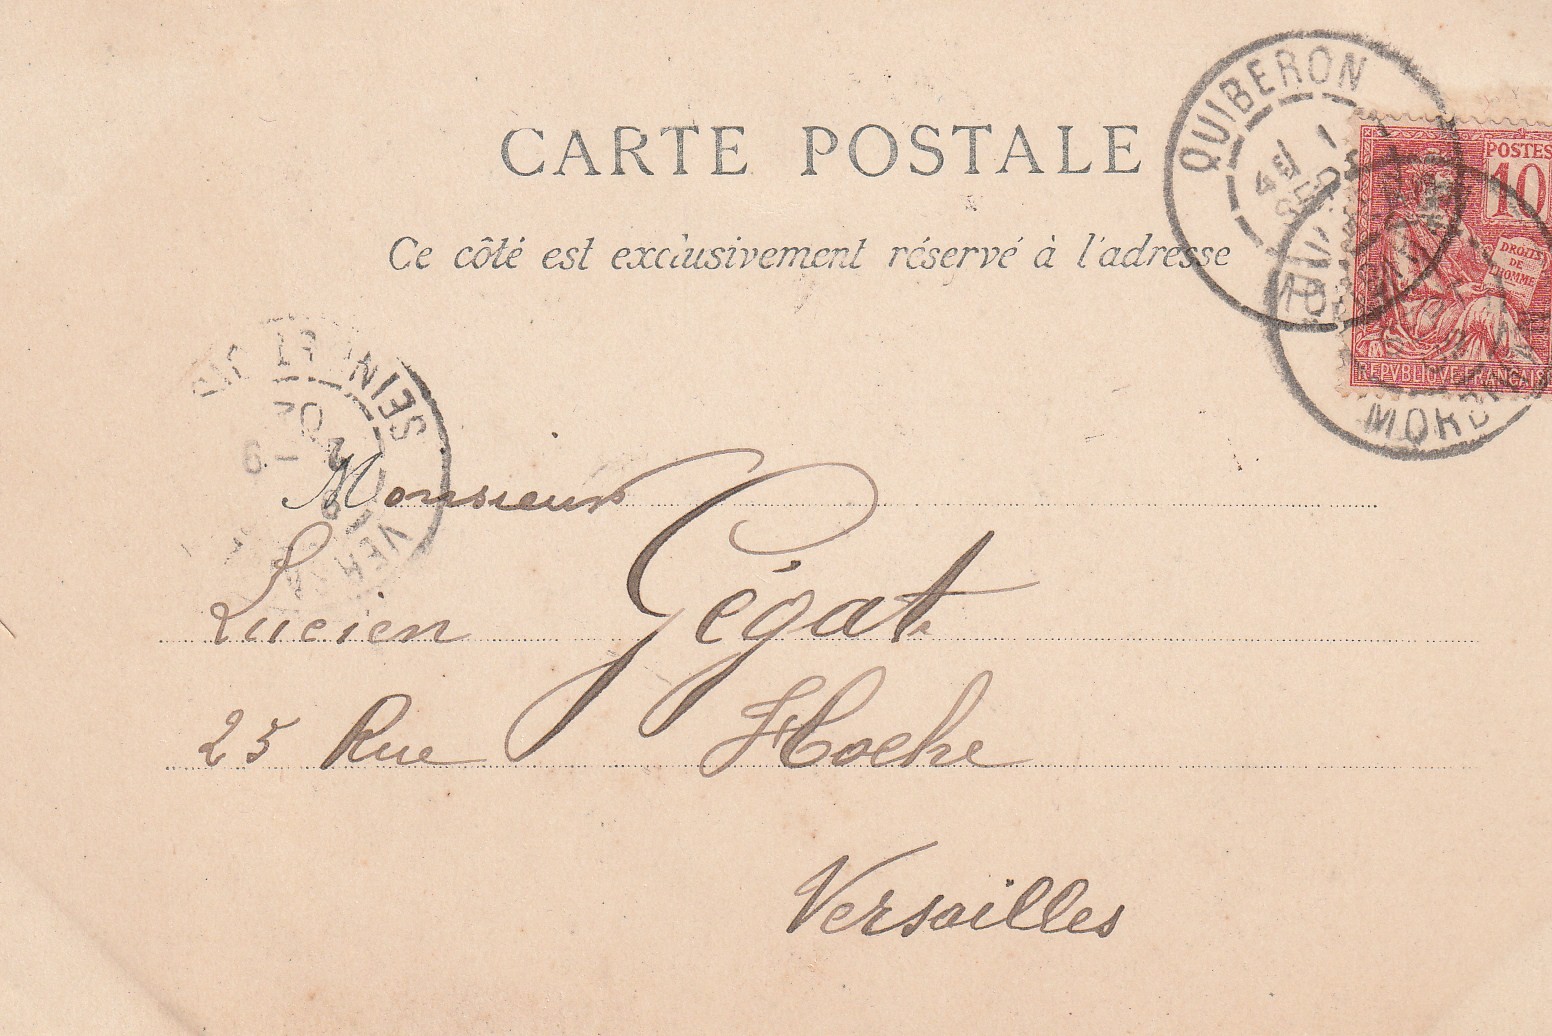 CARTE POSTALE
Ce côté est exclusivement réservé à l'adresse
QUIBERON
POSTES
10
DROITS
DE
L'HOMME
REPVBLIQVE FRANÇAISE
Monsieur
Lucien Gégat
25 Rue Hoche
Versailles